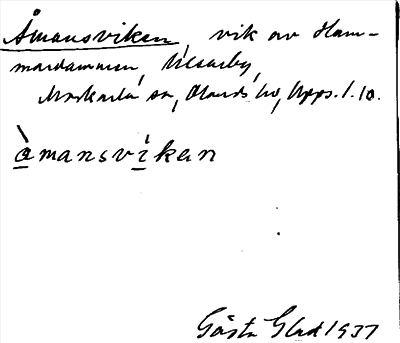 Åmansviken, vik av Ham-
mardammen, Vesterby,
Morkarla sn, Olands hd, Upps. l. 10.
åmansvikan
Gösta Glad 1937